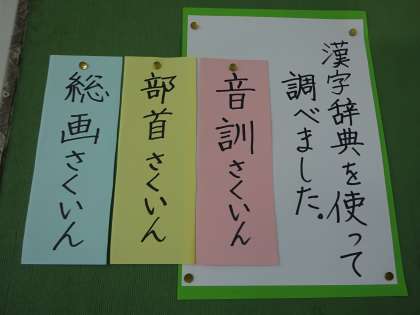 漢字辞典を使って
調べました。
音訓さくいん
部首さくいん
総画さくいん